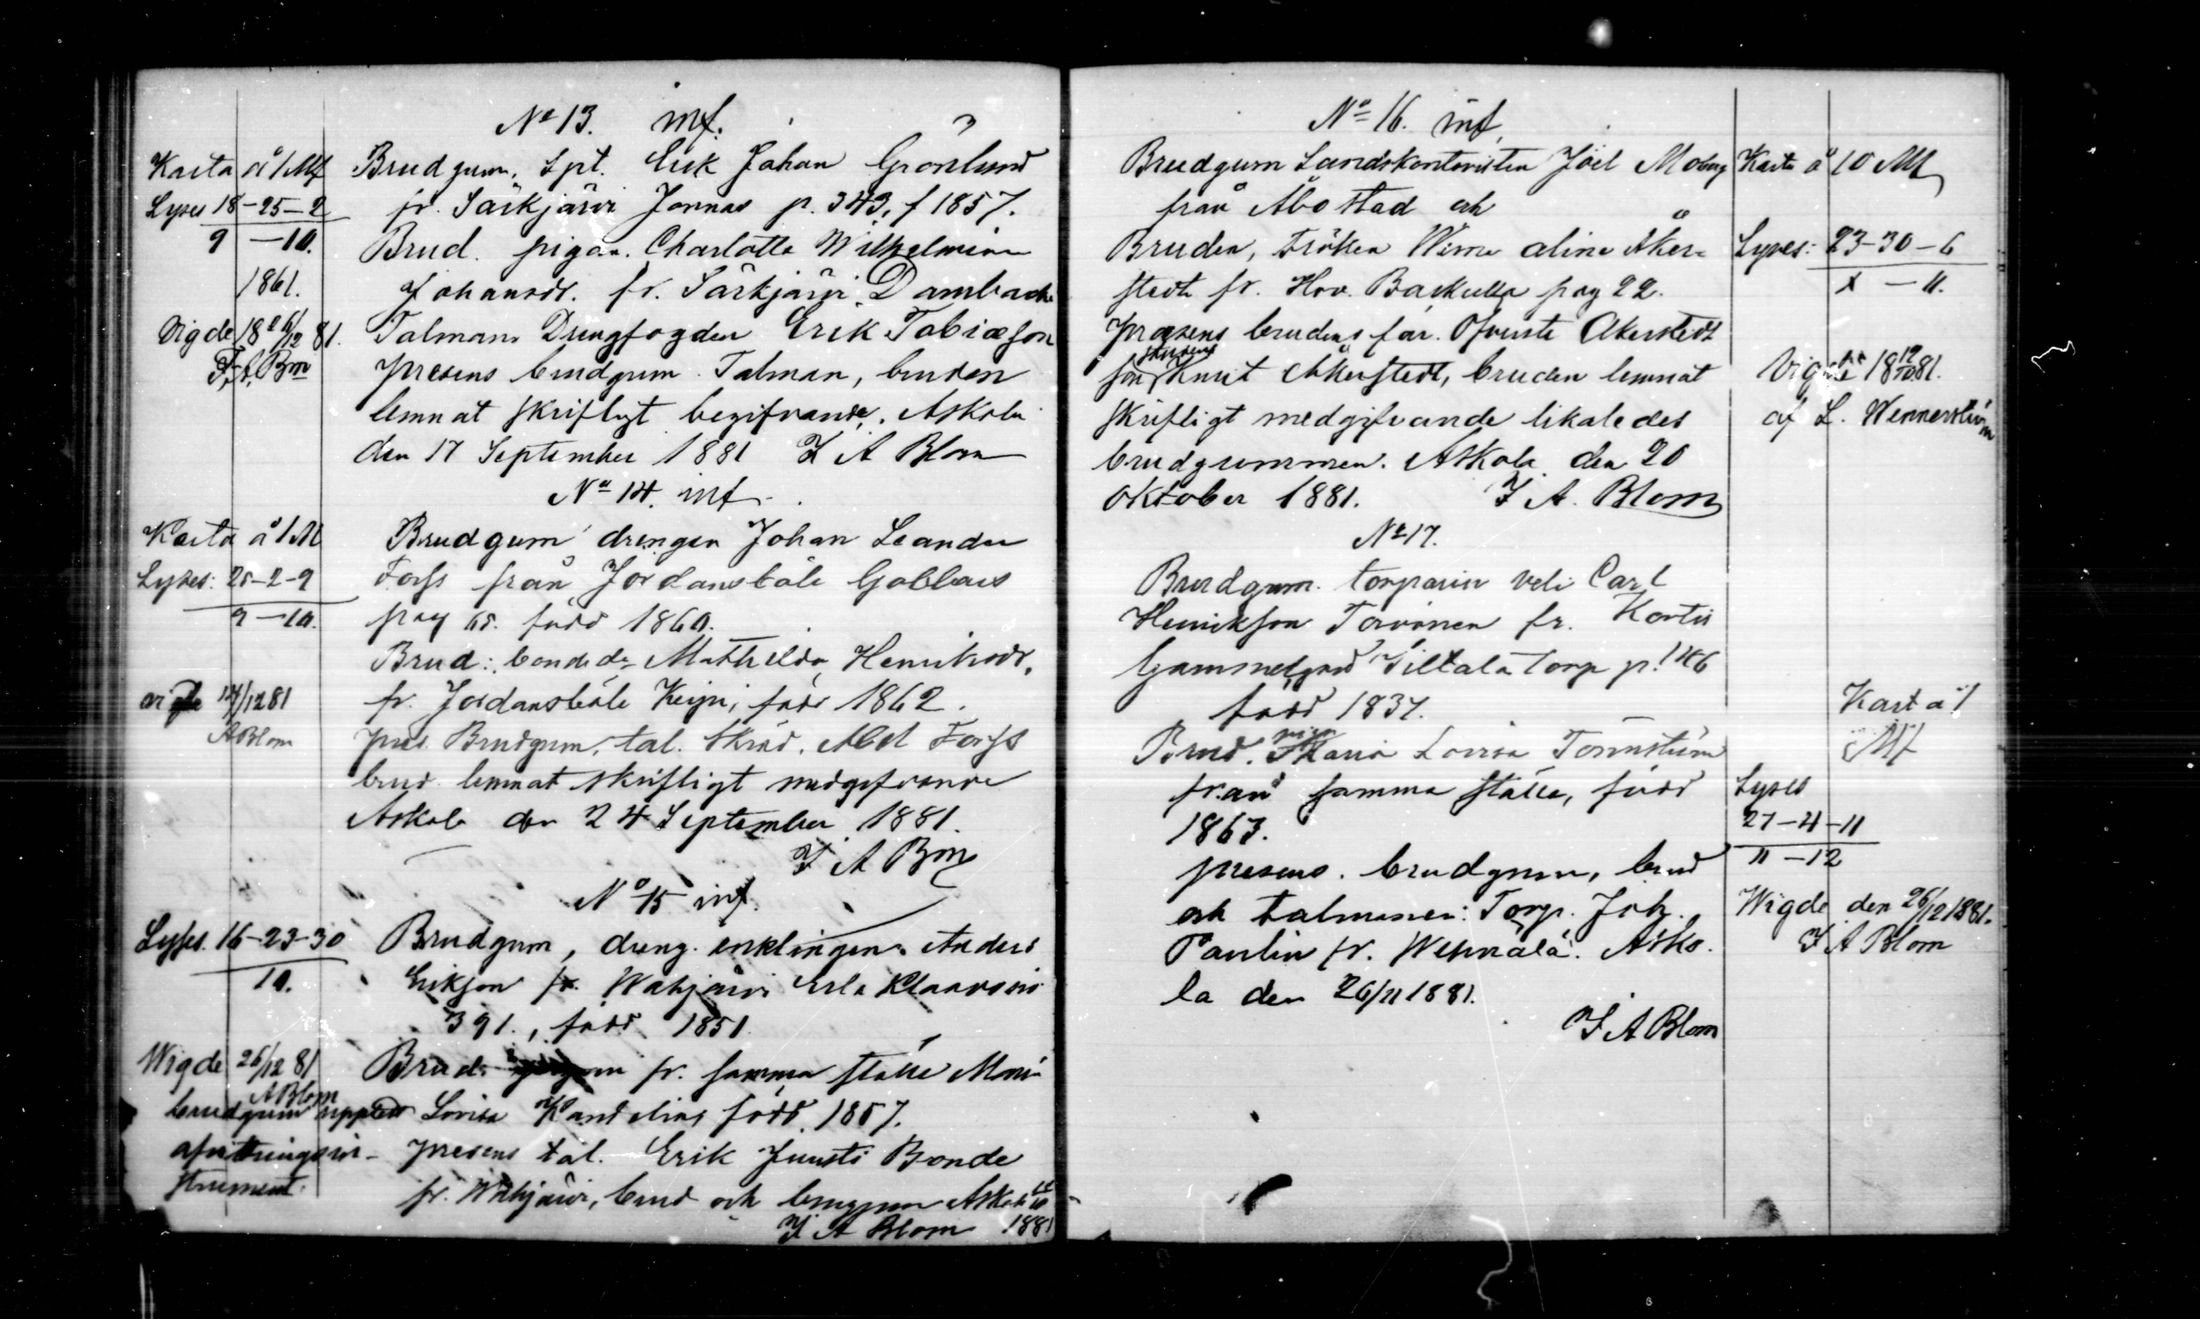 No 13. inf.
Karta á 1 Mf
Brudgum. Spt. Erik Johan Grönlund
Lyses 18-25-2
9 - 10.
fr. Särkjärvi Jonnas p. 343. f 1857.
Brud. pigan. Charlotta Wilhelmina
1861.
Johansdr. fr. Särkjärvi Dambacka
Vigde 18 26/12 81.
Talman Drengfogden Erik Tobiæson
F. A. Bm
presens brudgum Talman, bruden
lemnat skriftligt begifvande. Askola
den 17 September 1881 F A Blom
No 14. inf.
Karta á 1 M
Brudgum drengen Johan Leander
Lyses: 25-2-9
9 - 10.
Forss från Jordansböle Gobbars
pag 65. född 1860.
Brud: bondedr Mathilda Henriksdr.
vigde 14/12 81
A Blom
fr. Jordansböle Keipi, född 1862.
pres. Brudgum, tal. Skräd. Abel Forss
brud lemnat skriftligt medgifvande
Askola den 24 September 1881.
F A Bm
No 15 inf.
Lyses. 16-23-30
10.
Brudgum, dreng. enklingen Anders
Erikson fr. Wahjärvi Erla Klaavoin
391., född 1851.
Wigde 26/12 81
A Blom
Brud. fr. samma ställe Maria
brudgum uppted
Lovisa Kandelin född 1857.
afvittringsin-
presens tal. Erik Juusti Bonde
strument.
fr. Wahjärvi, brud och brugum Askola
F A Blom 1881
No 16. inf.
Brudgum Landskontoristen Joel Moberg
Karta á 10 Mf
från Åbo stad och
Bruden, Fröken Werna Alina Åker-
Lyses: 23-30-6
x - 11.
stedt fr. Hov. Backulla pag 22.
præsens brudens far. Öfverste Åkerstedt
studens
son Knut Åkerstedt, bruden lemnat
Vigde 18 12/10 81.
skriftligt medgifvande likaledes
af L. Wennerström
brudgummen. Askola den 20
Oktober 1881. F A. Blom
No 17.
Brudgum. torparen Carl
Henriksson Torvonen fr.
Gammelgård Siltala torp p. 146
född 1837.
Kart á 1
Mf
pigan
Brud. Maria Lovisa Törnström
från samma ställe, född
Lyses
1863.
27-4-11
11 - 12
presens. brudgum, brud
och talmannen: Torp. Joh.
Wigde den 26/12 1881.
F A Blom
Paulin fr. Wehnälä. Asko-
la den 26/11 1881.
F A Blom